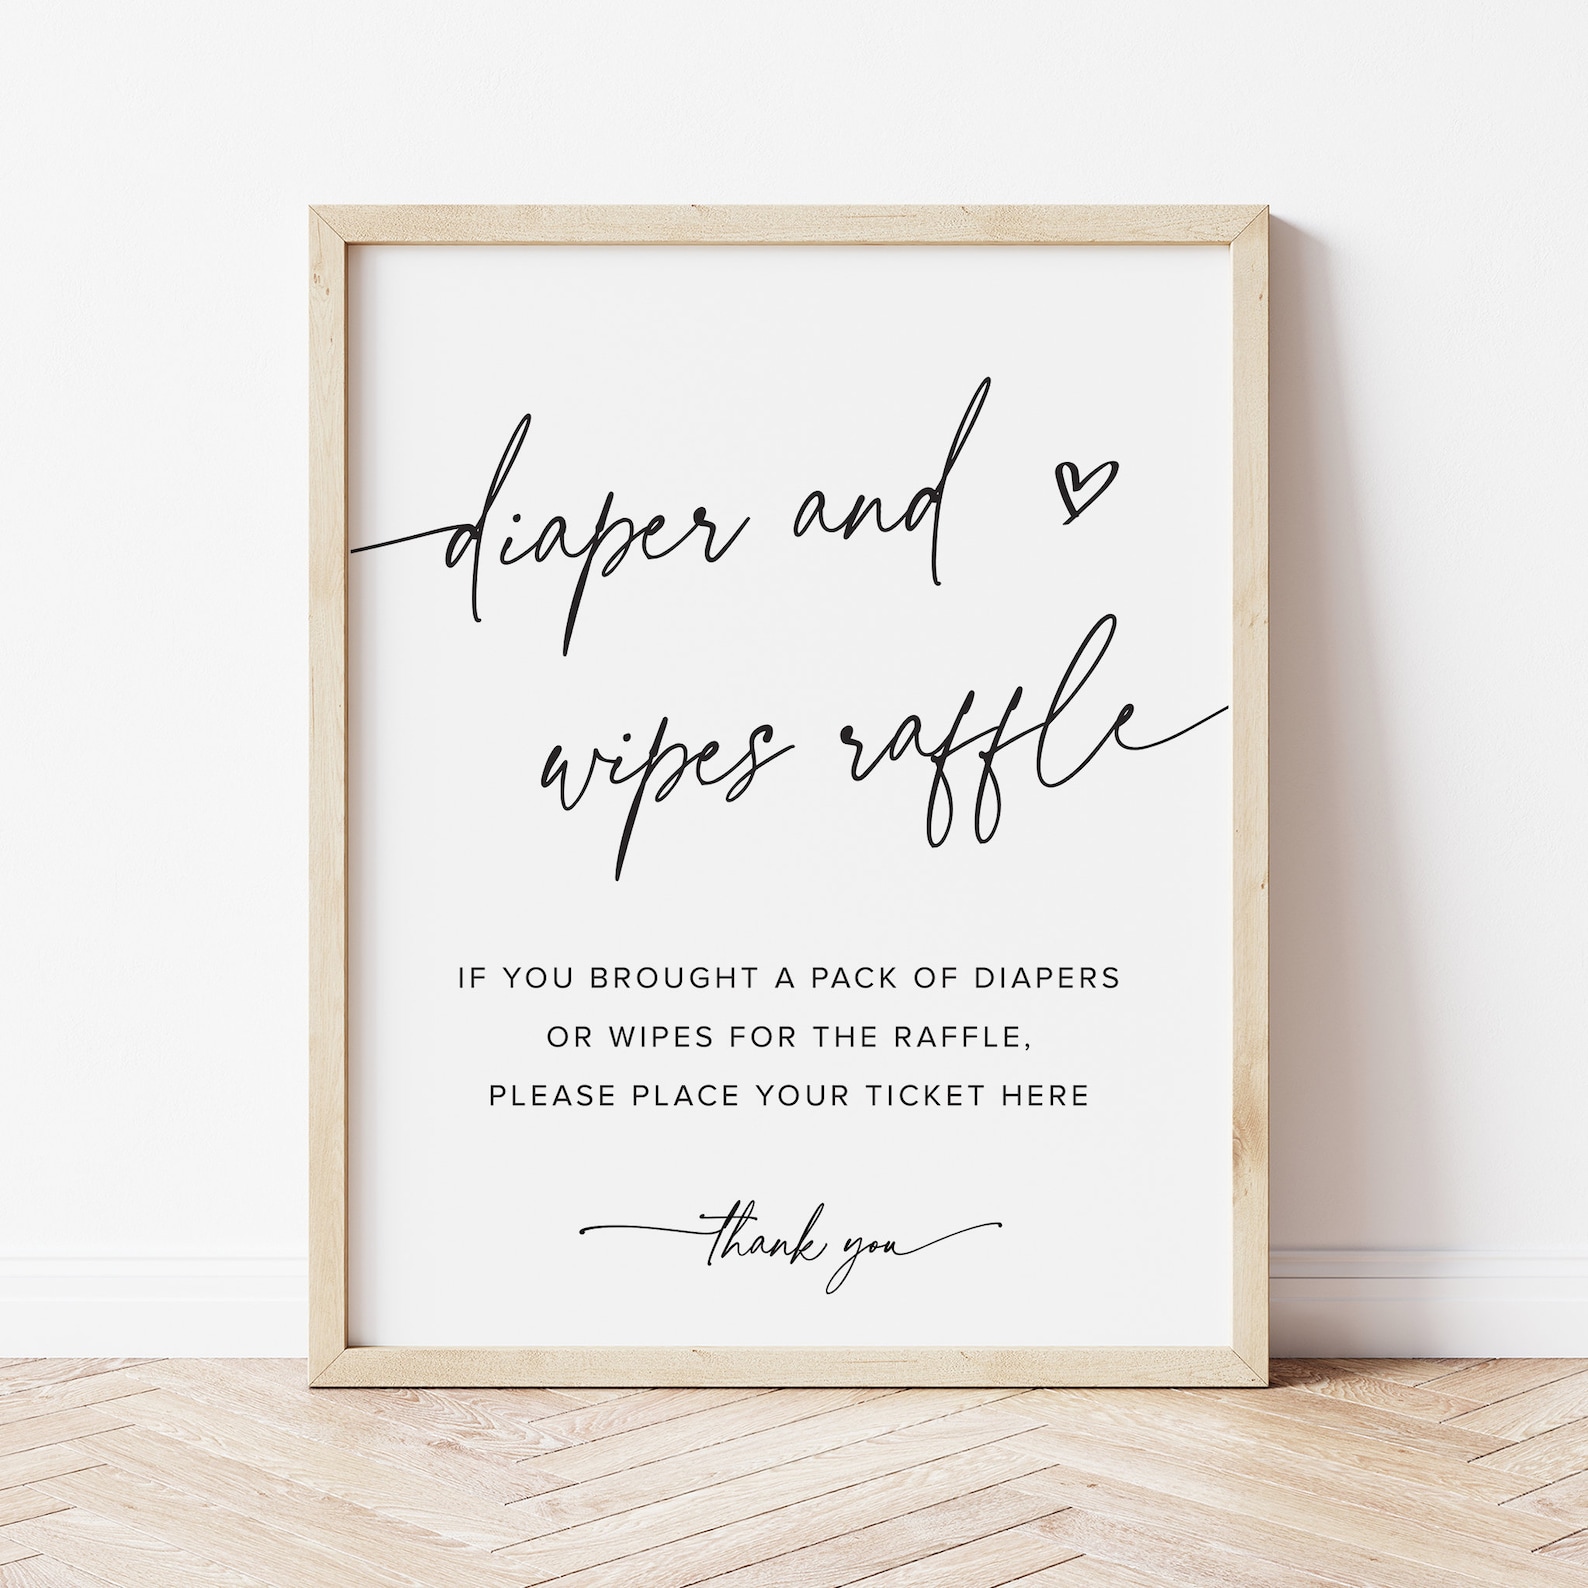 diaper and
wipes raffle
IF YOU BROUGHT A PACK OF DIAPERS
OR WIPES FOR THE RAFFLE,
PLEASE PLACE YOUR TICKET HERE
thank you